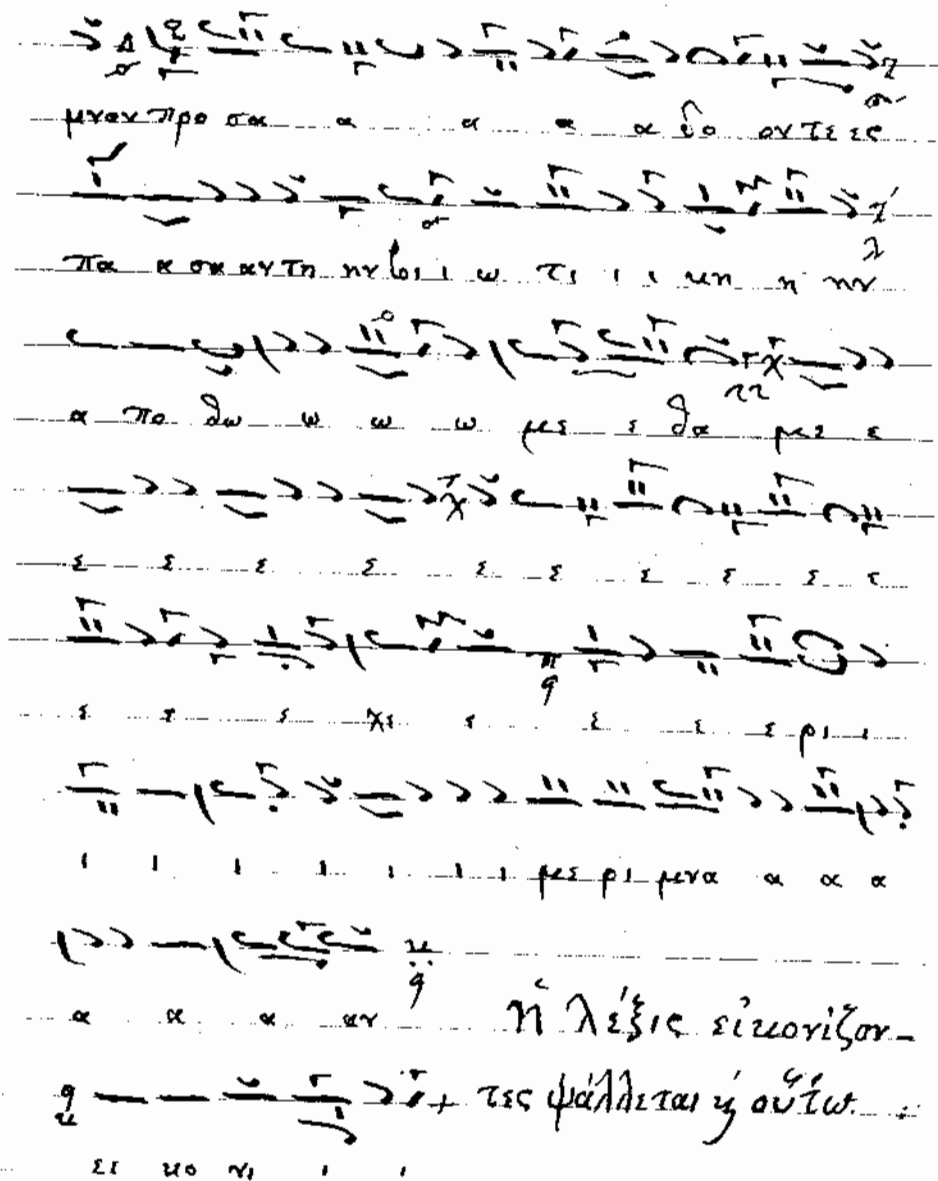 μναν προ σα α α α α δο οντε ες
πα α σα αν τη ην βι ι ω τι ι ι κη η ην
α πο θω ω ω ω με ε θα με ε
ε ε ε ε ε ε ε ε ε ε
ε ε ε χε ε ε ε ε ρι ι
ι ι ι ι ι ι ι με ρι μνα α α α
α α α αν
ἡ λέξις εἰκονίζον-
τες ψάλλεται ϗ οὕτω :
ει κο νι ι ι